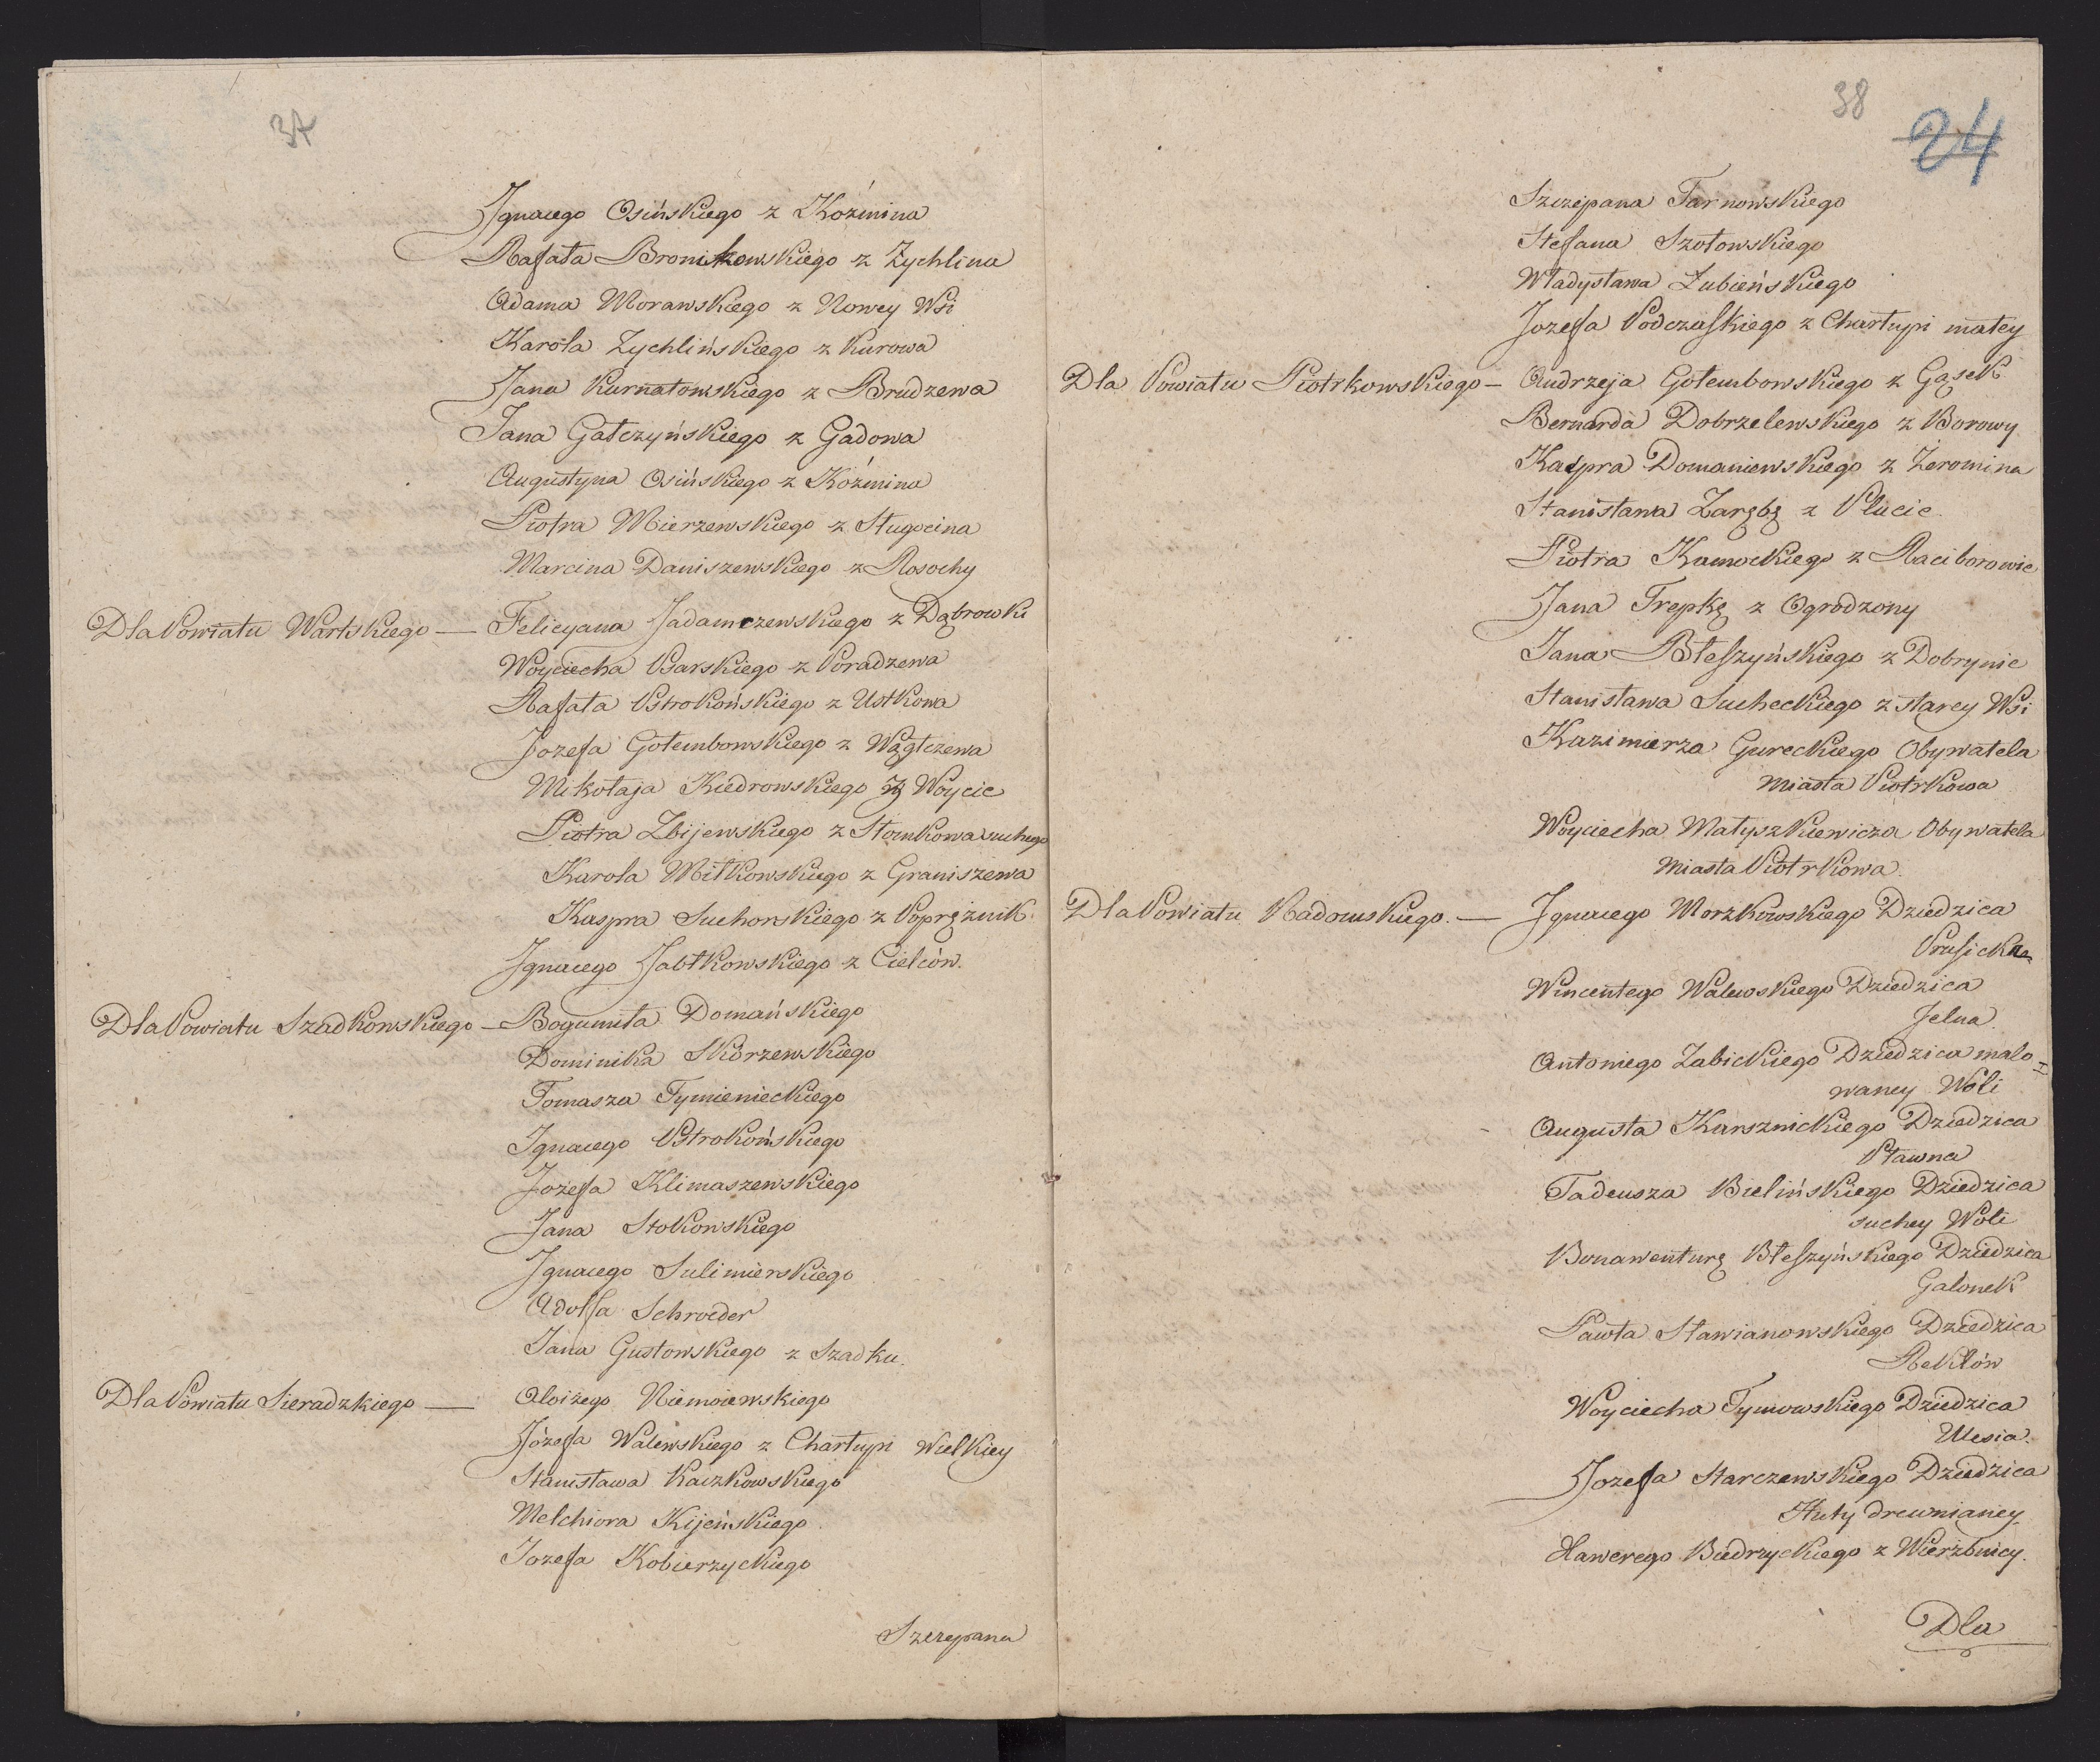 37
Jgnacego Osińskiego z Koźmina
Rafała Bronikowskiego z Zychlina
Adama Morawskiego z Nowey Wsi
Karola Zychlińskiego z Kurowa
Jana Kurnatowskiego z Brudzewa
Jana Gałczyńskiego z Gadowa
Augustyna Osińskiego z Koźmina
Piotra Mierzewskiego z Sługocina
Marcina Daniszewskiego z Rosochy
Dla Powiatu Wartskiego — Felicyana Jadamczewskiego z Dąbrowki
Woyciecha Psarskiego z Poradzewa
Rafała Pstrokońskiego z Ustkowa
Jozefa Gołembowskiego z Wągłczewa
Mikołaja Kiedrowskiego z Woycic
Piotra Zbijewskiego z Słomkowa suchego
Karola Miłkowskiego z Graniszewa
Kaspra Suchorskiego z Poprężnik
Jgnacego Jabłkowskiego z Cielców.
Dla Powiatu Szadkowskiego — Bogumiła Domańskiego
Dominika Skórzewskiego
Tomasza Tymienieckiego
Jgnacego Pstrokońskiego
Jozefa Klimaszewskiego
Jana Stokowskiego
Jgnacego Sulimierskiego
Adolfa Schroeder
Jana Gustowskiego z Szadku.
Dla Powiatu Sieradzkiego — Aloizego Niemoiewskiego
Józefa Walewskiego z Chartupi Wielkiey
Stanisława Kaczkowskiego
Melchiora Kijeńskiego.
Jozefa Kobierzyckiego
Szczepana
38
24
Szczepana Tarnowskiego
Stefana Szołowskiego
Władysława Łubieńskiego
Jozefa Podczaskiego z Chartupi małey
Dla Powiatu Piotrkowskiego — Andrzeja Gołembowskiego z Gąsek
Bernarda Dobrzelewskiego z Borowy
Kaspra Domaniewskiego z Żeromina
Stanisława Zarębę z Plucic.
Piotra Kamockiego z Raciborowic
Jana Trepkę z Ogrodzony
Jana Błeszyńskiego z Dobrynic
Stanisława Sucheckiego z starey Wsi
Kazimierza Gureckiego Obywatela
Miasta Piotrkowa
Woyciecha Matyszkiewicza Obywatela
Miasta Piotrkowa.
Dla Powiatu Radomskiego. — Jgnacego Morzkowskiego Dziedzica
Prusicka
Wincentego Walewskiego Dziedzica
Jelna.
Antoniego Zabickiego Dziedzica malo=
waney Woli
Augusta Karsznickiego Dziedzica
Pławna
Tadeusza Bielińskiego Dziedzica
suchey Woli
Bonawenturę Błeszyńskiego Dziedzica
Galonek
Pawła Stawianowskiego Dziedzica
Rekłów
Woyciecha Tymowskiego Dziedzica
Ulesia.
Jozefa Starczewskiego Dziedzica
Huty drewnianey
Xawerego Biedrzyckiego z Wierzbnicy.
Dla